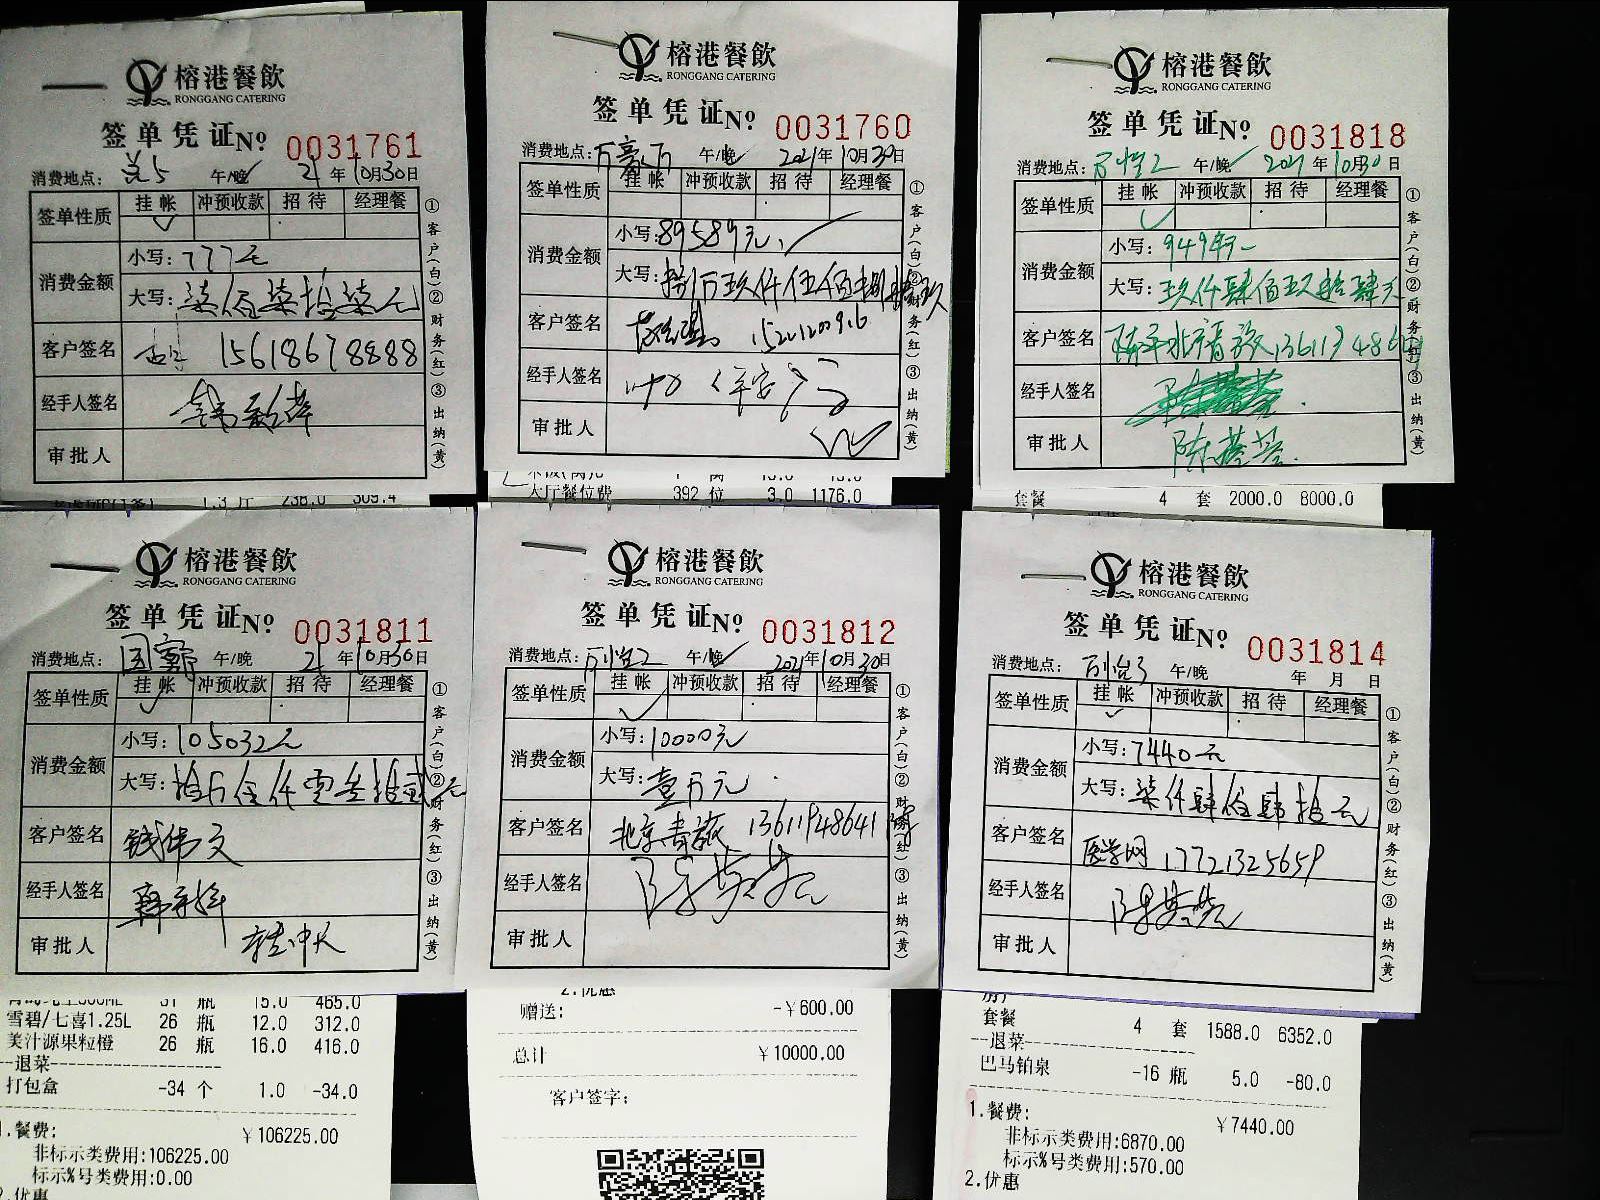 榕港餐飲
RONGGANG CATERING
签单凭证№ 0031761
消费地点: 午/晚 21年10月30日
签单性质 挂帐 冲预收款 招待 经理餐
消费金额 小写: 777元
大写: 柒佰柒拾柒元
客户签名 15618678888
经手人签名
审批人
①客户(白)②财务(红)③出纳(黄)
榕港餐飲
RONGGANG CATERING
签单凭证№ 0031760
消费地点: 午/晚 2021年10月30日
签单性质 挂帐 冲预收款 招待 经理餐
消费金额 小写: 89589元
大写: 捌万玖仟伍佰捌拾玖
客户签名
经手人签名
审批人
①客户(白)②财务(红)③出纳(黄)
大厅餐位费 392 位 3.0 1176.0
榕港餐飲
RONGGANG CATERING
签单凭证№ 0031818
消费地点: 午/晚 2021年10月30日
签单性质 挂帐 冲预收款 招待 经理餐
消费金额 小写:
大写: 玖仟肆佰玖拾肆元
客户签名 北京青旅
经手人签名
审批人
①客户(白)②财务(红)③出纳(黄)
套餐 4 套 2000.0 8000.0
榕港餐飲
RONGGANG CATERING
签单凭证№ 0031811
消费地点: 国宴厅 午/晚 21年10月30日
签单性质 挂帐 冲预收款 招待 经理餐
消费金额 小写: 105032元
大写: 拾万伍仟零叁拾贰元
客户签名 钱伟文
经手人签名
审批人
①客户(白)②财务(红)③出纳(黄)
31 瓶 15.0 465.0
雪碧/七喜1.25L 26 瓶 12.0 312.0
美汁源果粒橙 26 瓶 16.0 416.0
--退菜--
打包盒 -34 个 1.0 -34.0
1.餐费: ¥106225.00
非标示类费用:106225.00
标示%号类费用:0.00
2.优惠
榕港餐飲
RONGGANG CATERING
签单凭证№ 0031812
消费地点: 午/晚 2021年10月30日
签单性质 挂帐 冲预收款 招待 经理餐
消费金额 小写: 10000元
大写: 壹万元
客户签名 北京青旅 13611948641
经手人签名
审批人
①客户(白)②财务(红)③出纳(黄)
2.优惠
赠送: -¥600.00
总计 ¥10000.00
客户签字:
榕港餐飲
RONGGANG CATERING
签单凭证№ 0031814
消费地点: 午/晚 年 月 日
签单性质 挂帐 冲预收款 招待 经理餐
消费金额 小写: 7440元
大写: 柒仟肆佰肆拾元
客户签名 医学网 17721325659
经手人签名
审批人
①客户(白)②财务(红)③出纳(黄)
套餐 4 套 1588.0 6352.0
--退菜--
巴马铂泉 -16 瓶 5.0 -80.0
1.餐费: ¥7440.00
非标示类费用:6870.00
标示%号类费用:570.00
2.优惠